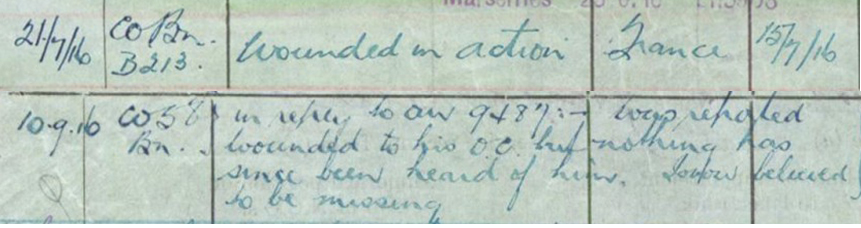 Marseilles 23 6.16
21/7/16 CO Bn. Wounded in action France 15/7/16
B213.
10.9.16 CO 58 in reply to our 9487:- was reported
Bn. wounded to his O.C. but nothing has
since been heard of him. Is now believed
to be missing